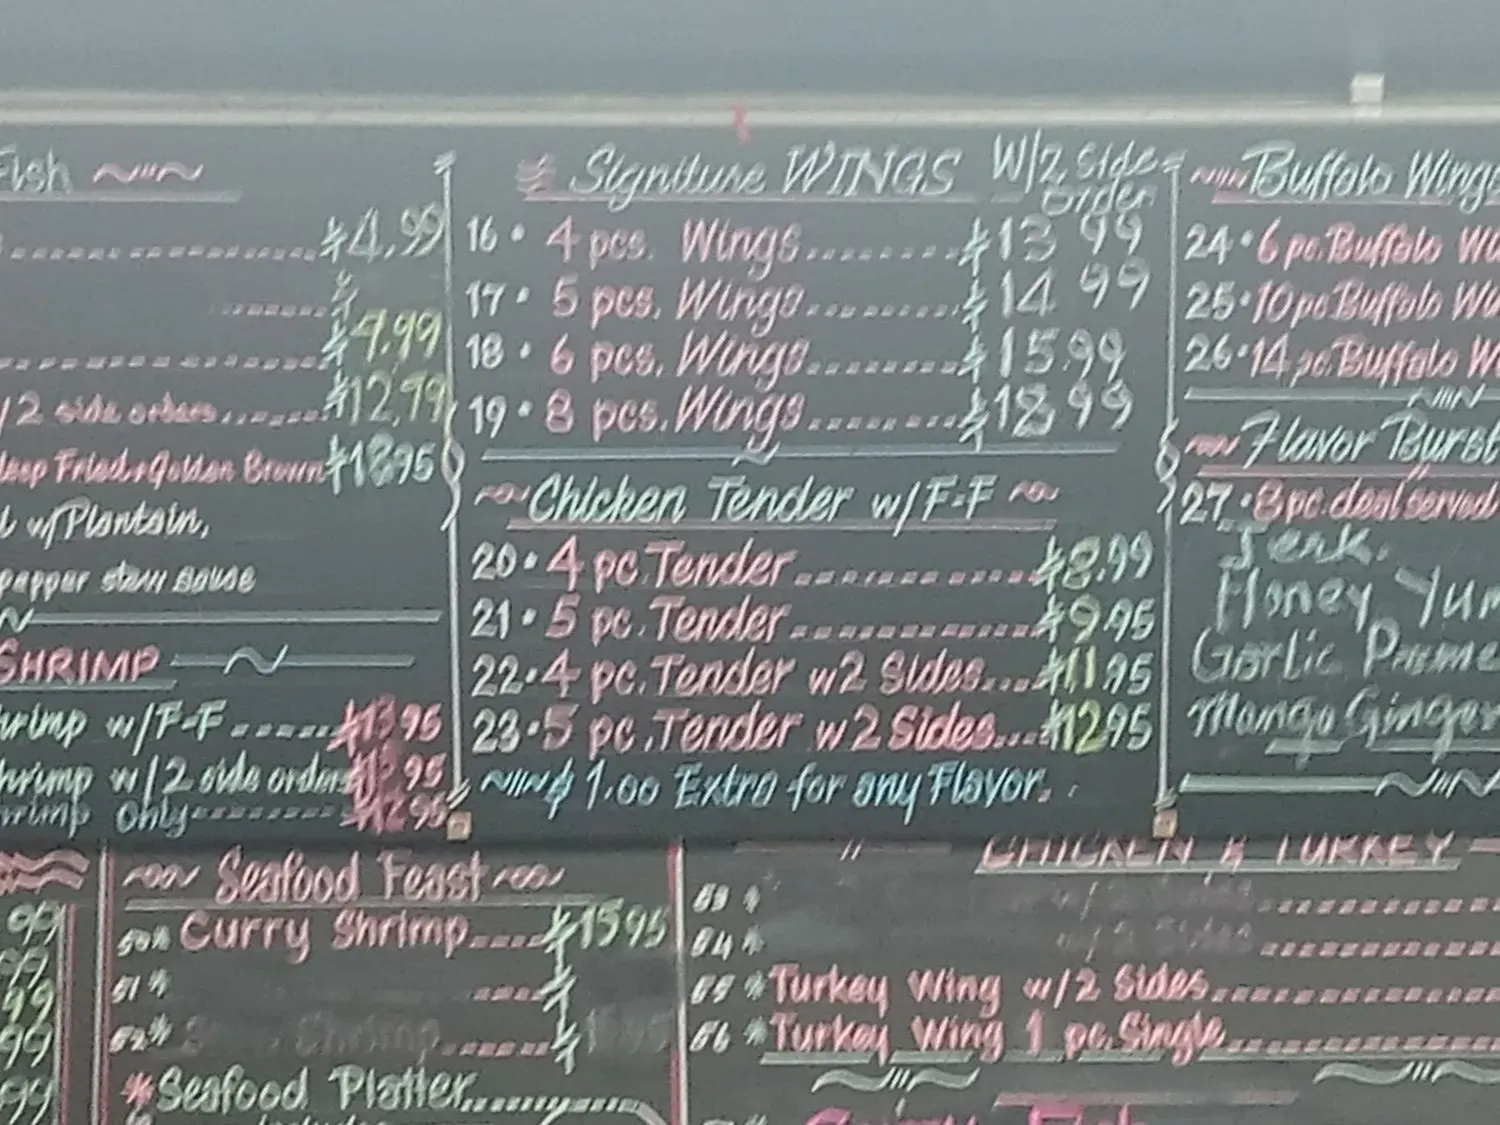 Fish
$4.99
$
$9.99
/2 side orders......$12.79
deep Fried & Golden Brown $1895
w/Plantain,
pepper stew sauce
SHRIMP
hrimp w/F-F......$1395
hrimp w/2 side orders 95
hrimp only.........$1295
Signiture WINGS W/2 Side order
16 • 4 pcs. Wings........$13 99
17 • 5 pcs. Wings........$14 99
18 • 6 pcs. Wings........$15.99
19 • 8 pcs. Wings........$18.99
Chicken Tender w/F-F
20 • 4 pc. Tender............$8.99
21 • 5 pc. Tender............$9.95
22 • 4 pc. Tender w2 Sides...$11.95
23 • 5 pc. Tender w2 Sides...$1295
$1.00 Extra for any Flavor.
Buffalo Wings
24 • 6 pc. Buffalo
25 • 10 pc Buffalo
26 • 14 pc. Buffalo
Flavor Burst
27 • 8 pc. deal served
Jerk.
Honey, Yum
Garlic Parme
Mango Ginger
99
99
99
99
99
Seafood Feast
50* Curry Shrimp....$1595
51* ....$
52* Shrimp......$
*Seafood Platter
CHICKEN & TURKEY
53 * w/2 Sides
54 * w/2 Sides
55 *Turkey Wing w/2 Sides
56 *Turkey Wing 1 pc. Single